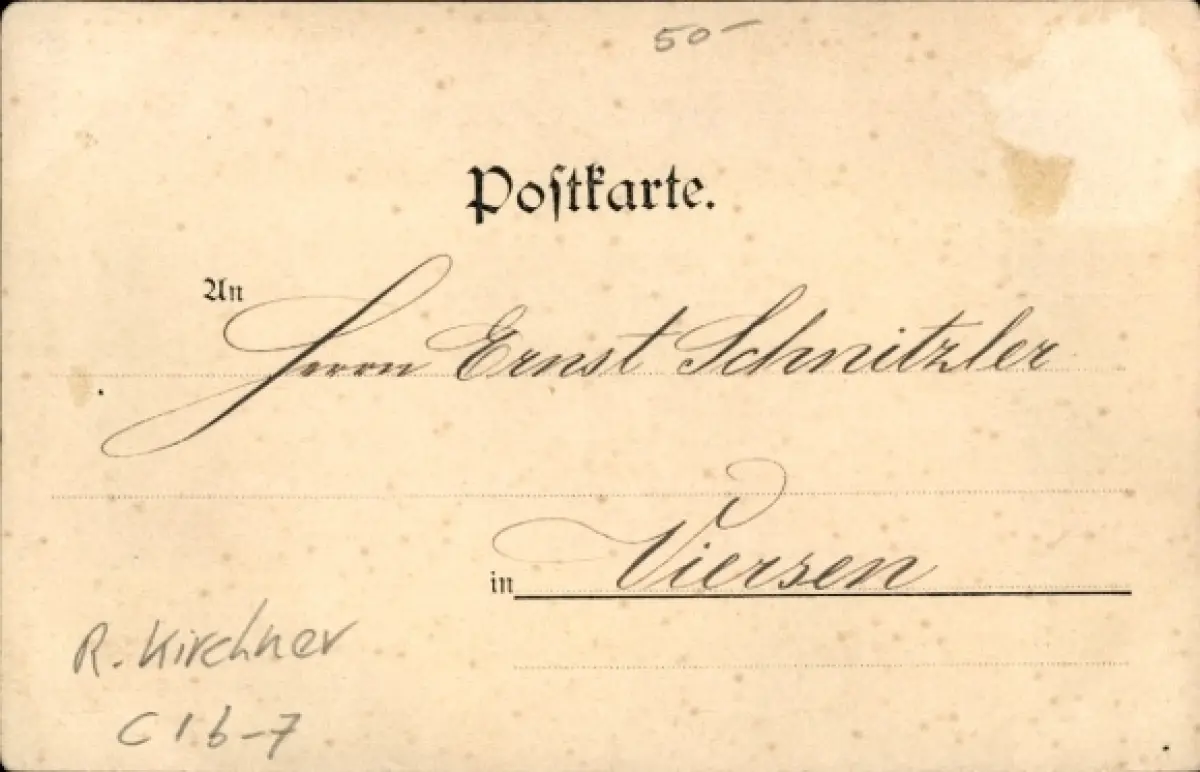 50-
Postkarte.
An
Herrn Ernst Schnitzler
in Viersen
R. Kirchner
C 1 b-7